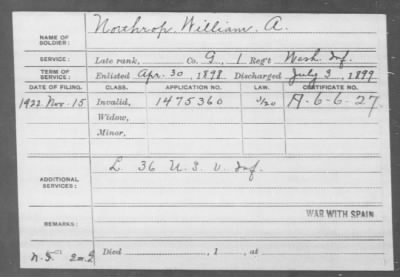 NAME OF SOLDIER: Northrop, William A.
SERVICE: Late rank, Co. G, 1 Reg't Wash. Inf.
TERM OF SERVICE: Enlisted Apr. 30, 1898. Discharged July 3, 1899
DATE OF FILING. CLASS. APPLICATION NO. LAW. CERTIFICATE NO.
1922 Nov. 15 Invalid, 1475360 A-6-6-27
Widow,
Minor.
ADDITIONAL SERVICES: L 36 U.S.V. Inf.
WAR WITH SPAIN
REMARKS:
Died , 1 , at